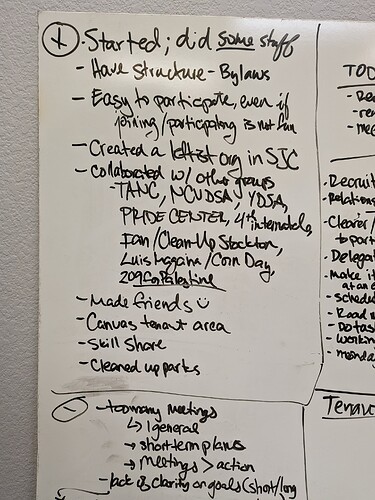 + · Started; did some stuff
- Have Structure - Bylaws
- Easy to participate, even if
joining/participating is not fun
- Created a leftist org in SJC
- Collaborated w/ other groups
- TANC, NCVDSA, YDSA,
PRIDE CENTER, 4th internationale,
Fan/Clean-Up Stockton,
Luis /Corn Day,
209forPalestine
- Made friends ü
- Canvas tenant area
- Skill share
- Cleaned up parks
- - too many meetings
↳ 1 general
→ short term plans
→ Meetings > action
- lack of clarity on goals (short/long
TOD
- Re
- re
- mee
· Recruit
· Relations
· Clearer/
to part
· Delegat
· Make it
at an e
· Schedu
· Road m
· Do tas
· working
· monda
Tenan